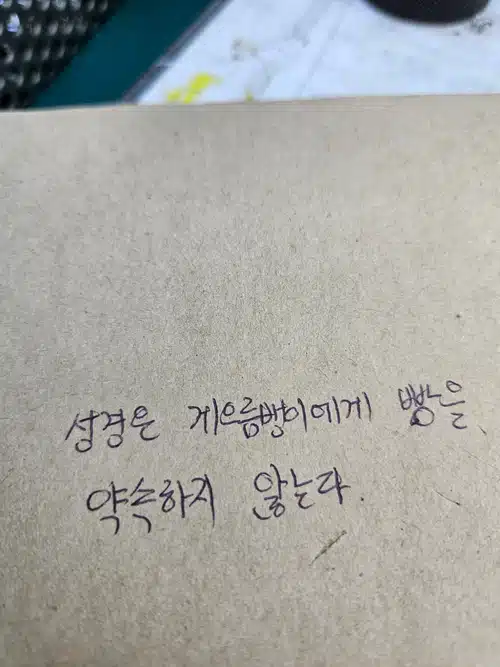 성경은 게으름뱅이에게 빵을
약속하지 않는다.